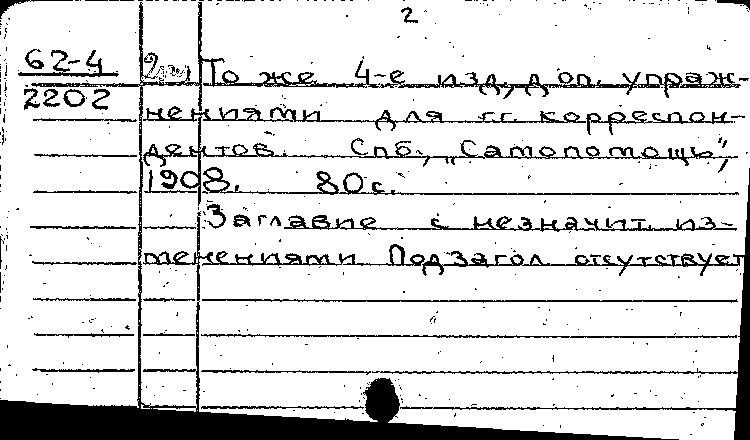 2
62-4 То же 4-е изд., доп. упраж-
2202 нениями для гг. корреспон-
дентов. Спб., „Самопомощь",
1908. 80 с.
Заглавие с незначит. из-
менениями Подзагол. отсутствует